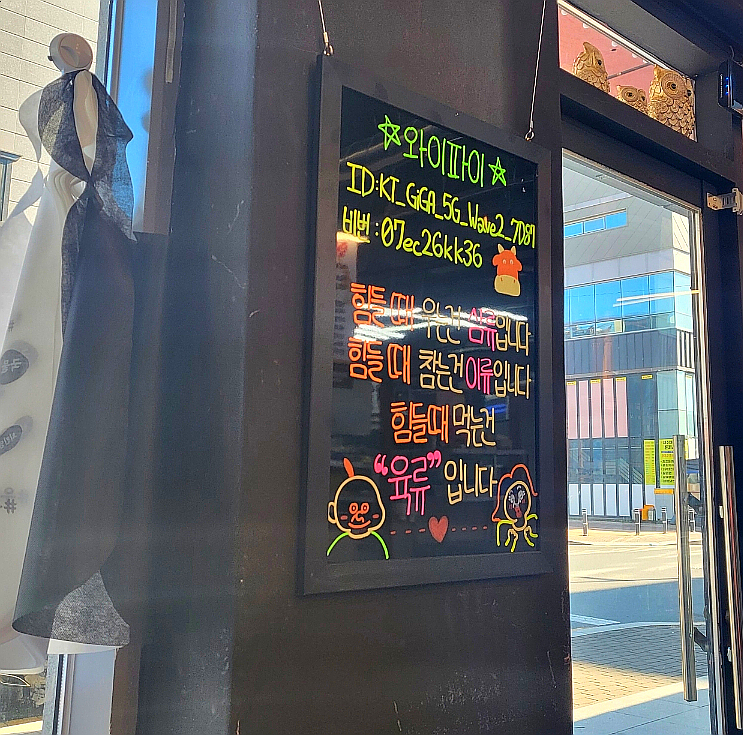 ☆와이파이☆
ID:KT_GiGA_5G_Wave2_7D87
비번:07ec26kk36
힘들 때 우는건 삼류입니다
힘들 때 참는건 이류입니다
힘들때 먹는건
“육류” 입니다